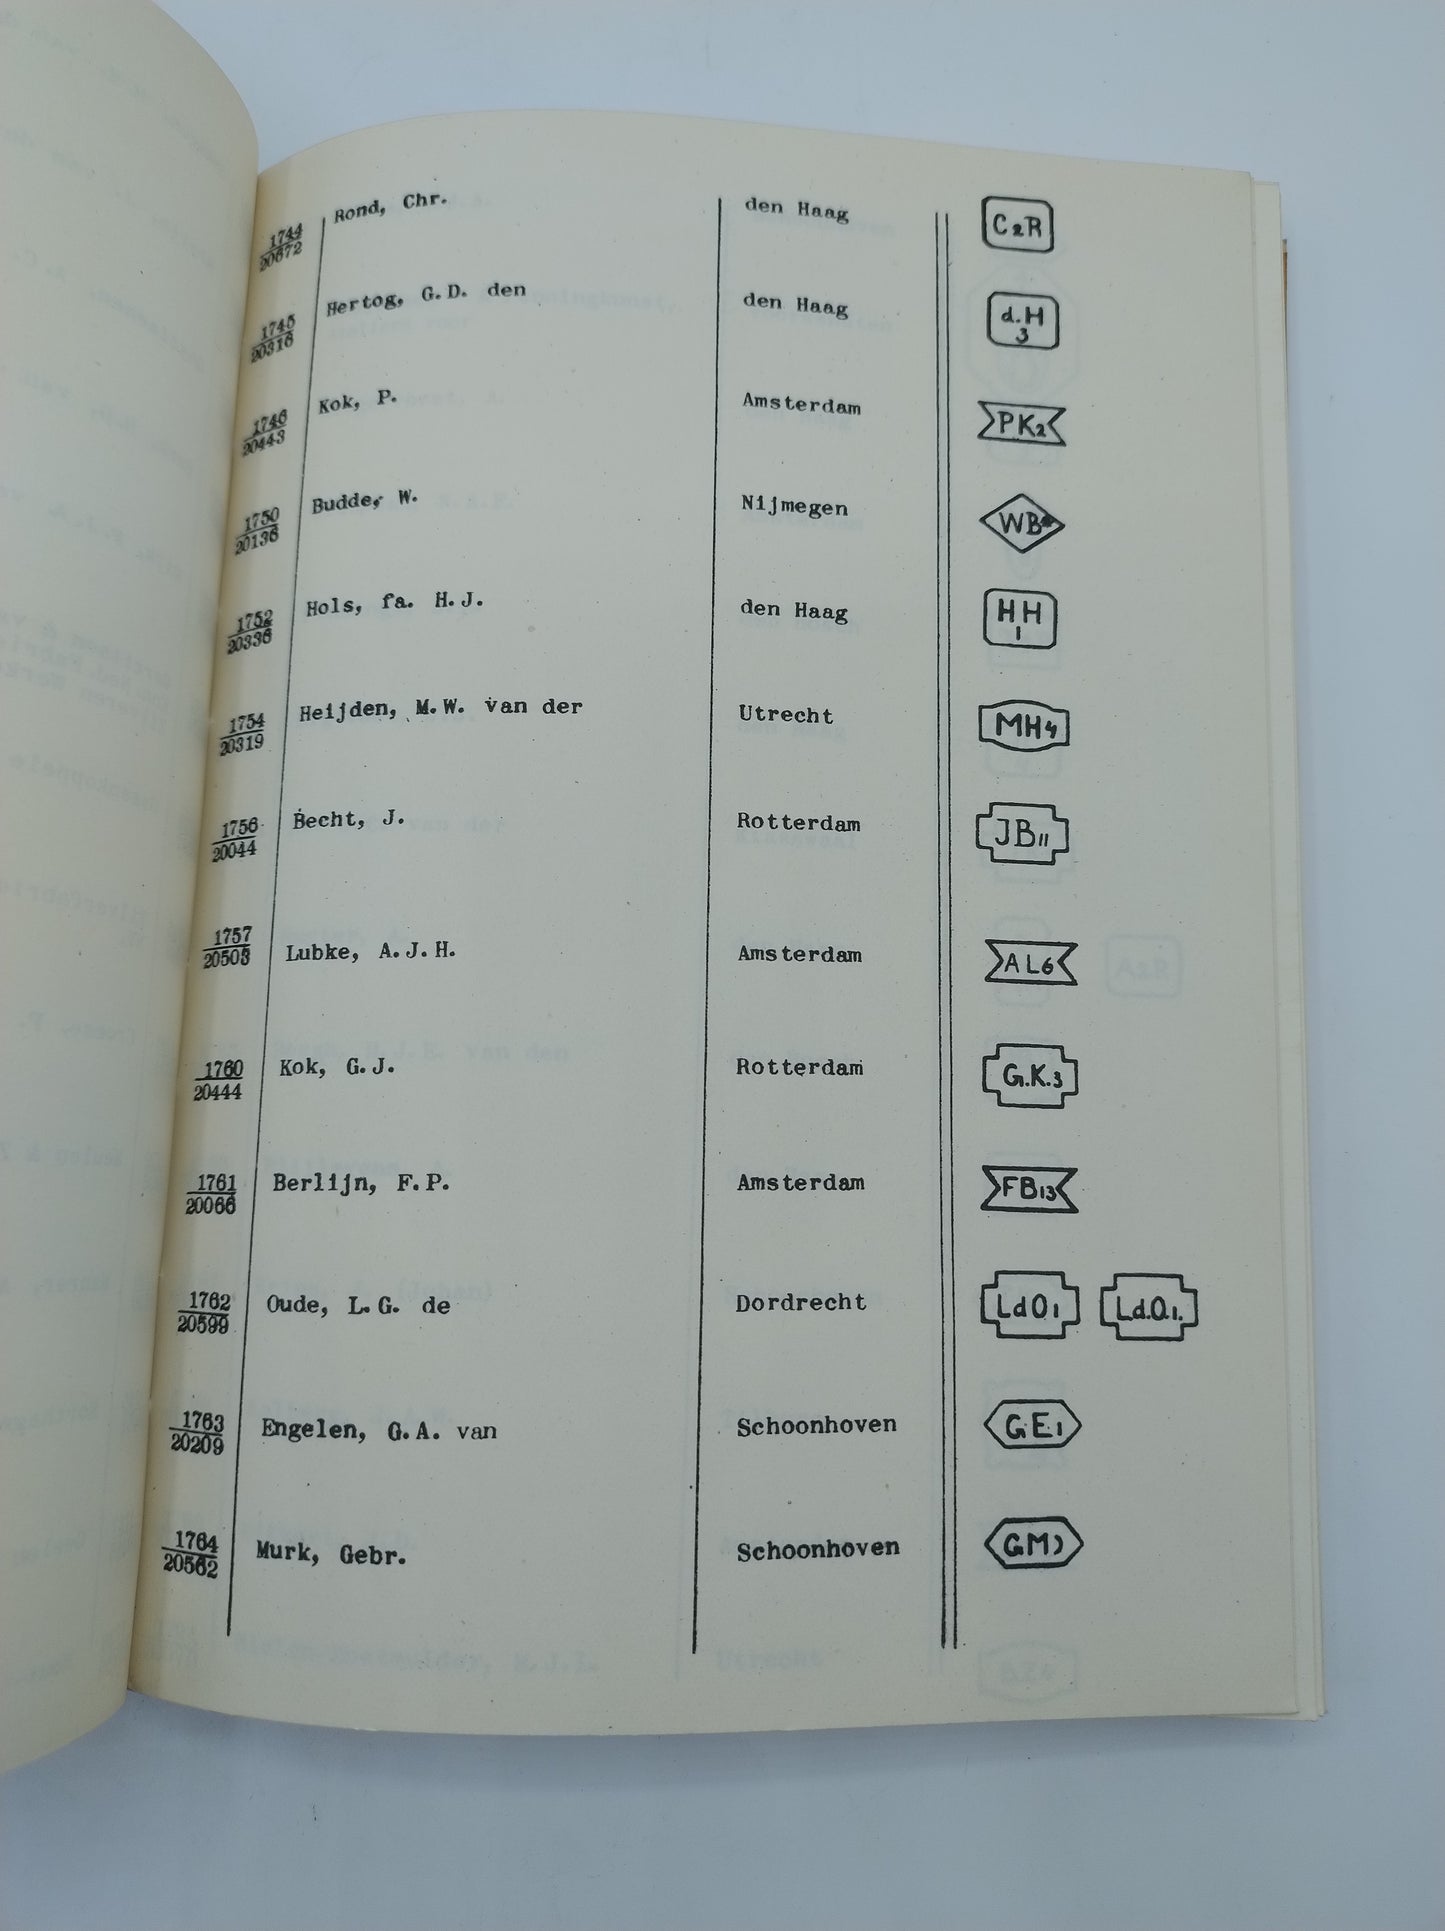 1744 Rond, Chr. den Haag C2R
20672
1745 Hertog, G.D. den den Haag d.H 3
20316
1746 Kok, P. Amsterdam PK2
20443
1750 Budde, W. Nijmegen WB
20136
1752 Hols, fa. H.J. den Haag HH 1
20336
1754 Heijden, M.W. van der Utrecht MH4
20319
1756 Becht, J. Rotterdam JB11
20044
1757 Lubke, A.J.H. Amsterdam AL6
20503
1760 Kok, G.J. Rotterdam G.K.3
20444
1761 Berlijn, F.P. Amsterdam FB13
20066
1762 Oude, L.G. de Dordrecht LdO1 L.d.O.1.
20599
1763 Engelen, G.A. van Schoonhoven GE1
20209
1764 Murk, Gebr. Schoonhoven GM
20562